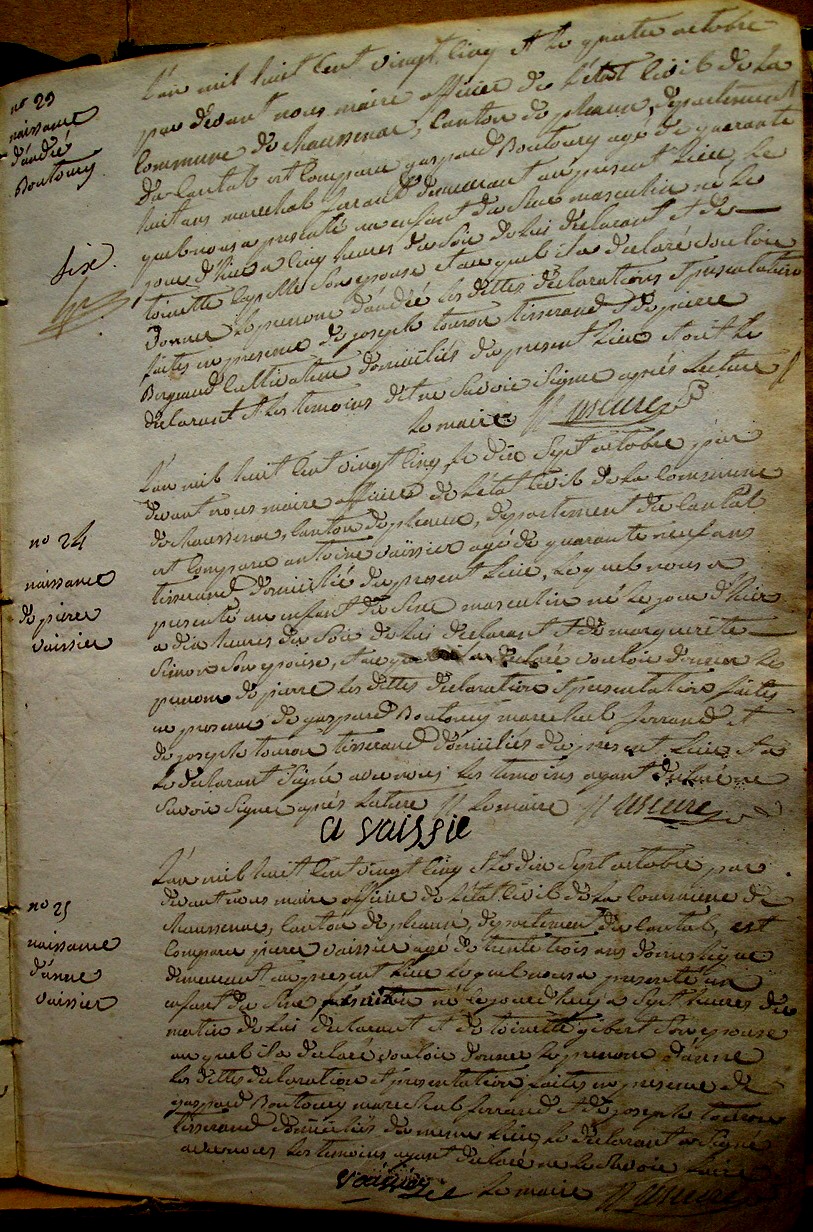 no 23
naissance
d'andré
Boutoury
six
L'an mil huit cent vingt cinq et le quatre octobre
par devant nous maire officier de l'état civil de la
commune de chaussenac, canton de pleaux, département
du Cantal est comparu gaspard Boutoury agé de quarante
huit ans marechal ferrant demeurant au present lieu, le
quel nous a presenté un enfant du sexe masculin né le
jour d'hier a cinq heures du soir de lui declarant et de
toinette Capelle son epouse et au quel il a declaré vouloir
donner le prenom d'andré les dittes declarations et presentation
faites en presence de joseph touron tisserand et de pierre
Bergeaud cultivateur domiciliés du present lieu et ont le
declarant et les temoins dit ne savoir signer après lecture
le maire
no 24
naissance
de pierre
vaissier
L'an mil huit cent vingt cinq, le dix sept octobre par
devant nous maire officier de l'état civil de la commune
de chaussenac, canton de pleaux, département du Cantal
est comparu antoine vaissier agé de quarante neuf ans
tisserand domicilié du present lieu, le quel nous a
presenté un enfant du sexe masculin né le jour d'hier
a dix heures du soir de lui declarant et de marguerite
Simon son epouse, et au quel il a declaré vouloir donner le
prenom de pierre les dittes declaration et presentation faites
en presence de gaspard Boutoury marechal ferrand et
de joseph touron tisserand domiciliés du present lieu et a
le declarant signé avec nous les temoins ayant declaré ne
savoir signer après lecture le maire
a vaissie
no 25
naissance
d'anne
vaissier
L'an mil huit cent vingt cinq et le dix sept octobre par
devant nous maire officier de l'état civil de la commune de
chaussenac, canton de pleaux, département du Cantal, est
comparu pierre vaissier agé de trente trois ans domestique
demeurant au present lieu le quel nous a presenté un
enfant du sexe feminin né le jour d'huy a sept heures du
matin de lui declarant et de toinette gibert son epouse
au quel il a declaré vouloir donner le prenom d'anne
les dittes declaration et presentation faites en presence de
gaspard Boutoury marechal ferrand et de joseph touron
tisserand domiciliés du meme lieu, le declarant a signé
avec nous les temoins ayant declaré ne le savoir faire
vaissier le maire